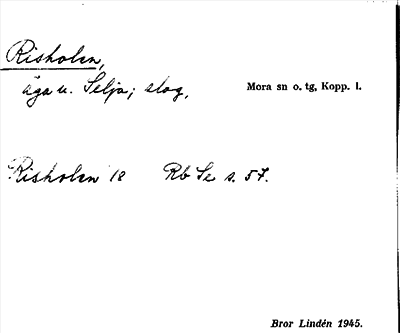 Risholen,
äga u. Selja; slog,
Mora sn o. tg, Kopp. l.
Risholen 18 Rb Se s. 57.
Bror Lindén 1945.